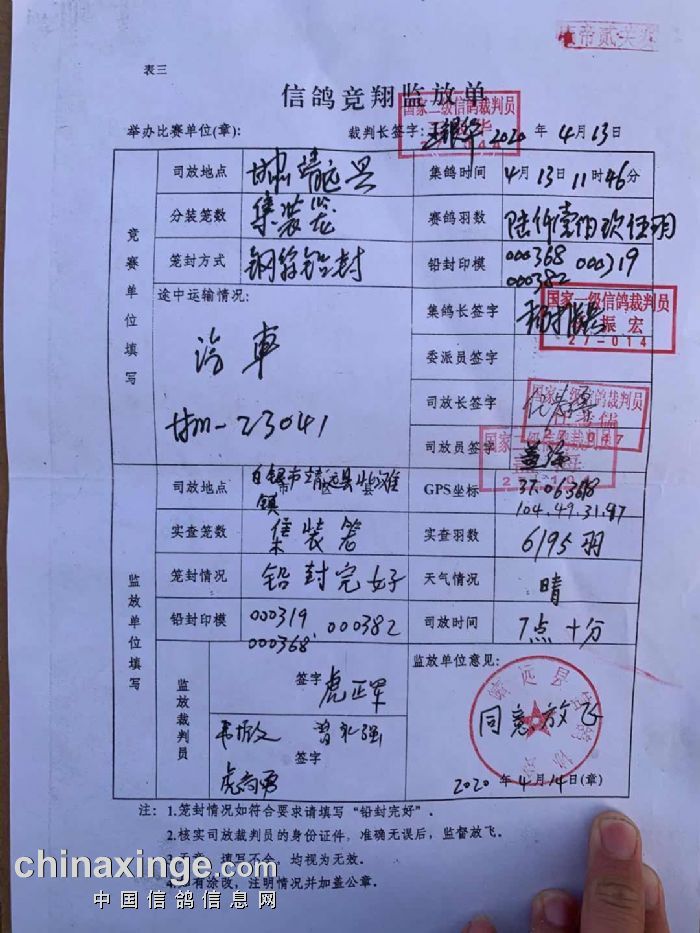 表三
信鸽竞翔监放单
国家二级信鸽裁判员
举办比赛单位(章): 裁判长签字: 2020 年 4月13日
竞赛单位填写
司放地点 甘肃靖远县 集鸽时间 4月13日11时46分
分装笼数 集装笼 赛鸽羽数 陆仟壹佰玖拾伍羽
笼封方式 钢丝铅封 铅封印模 000368 000319
000382
途中运输情况: 集鸽长签字
国家一级信鸽裁判员
振宏
27-014
汽車 委派员签字
司放长签字
级信鸽裁判员
047
23041 司放员签字
级信鸽裁判员
监放单位填写
司放地点 白银市靖远县北滩镇 GPS坐标
104.49.31.97
实查笼数 集装笼 实查羽数 6195羽
笼封情况 铅封完好 天气情况 晴
铅封印模 000319 000382 司放时间 7点十分
000368
监放裁判员 签字 虎正军 监放单位意见:
签字
靖远县信鸽协会
同意放飞
2020年4月14日(章)
注: 1.笼封情况如符合要求请填写“铅封完好”。
2.核实司放裁判员的身份证件,准确无误后,监督放飞。
填写不全,均视为无效。
有涂改,注明情况并加盖公章。
chinaxinge.com
中国信鸽信息网